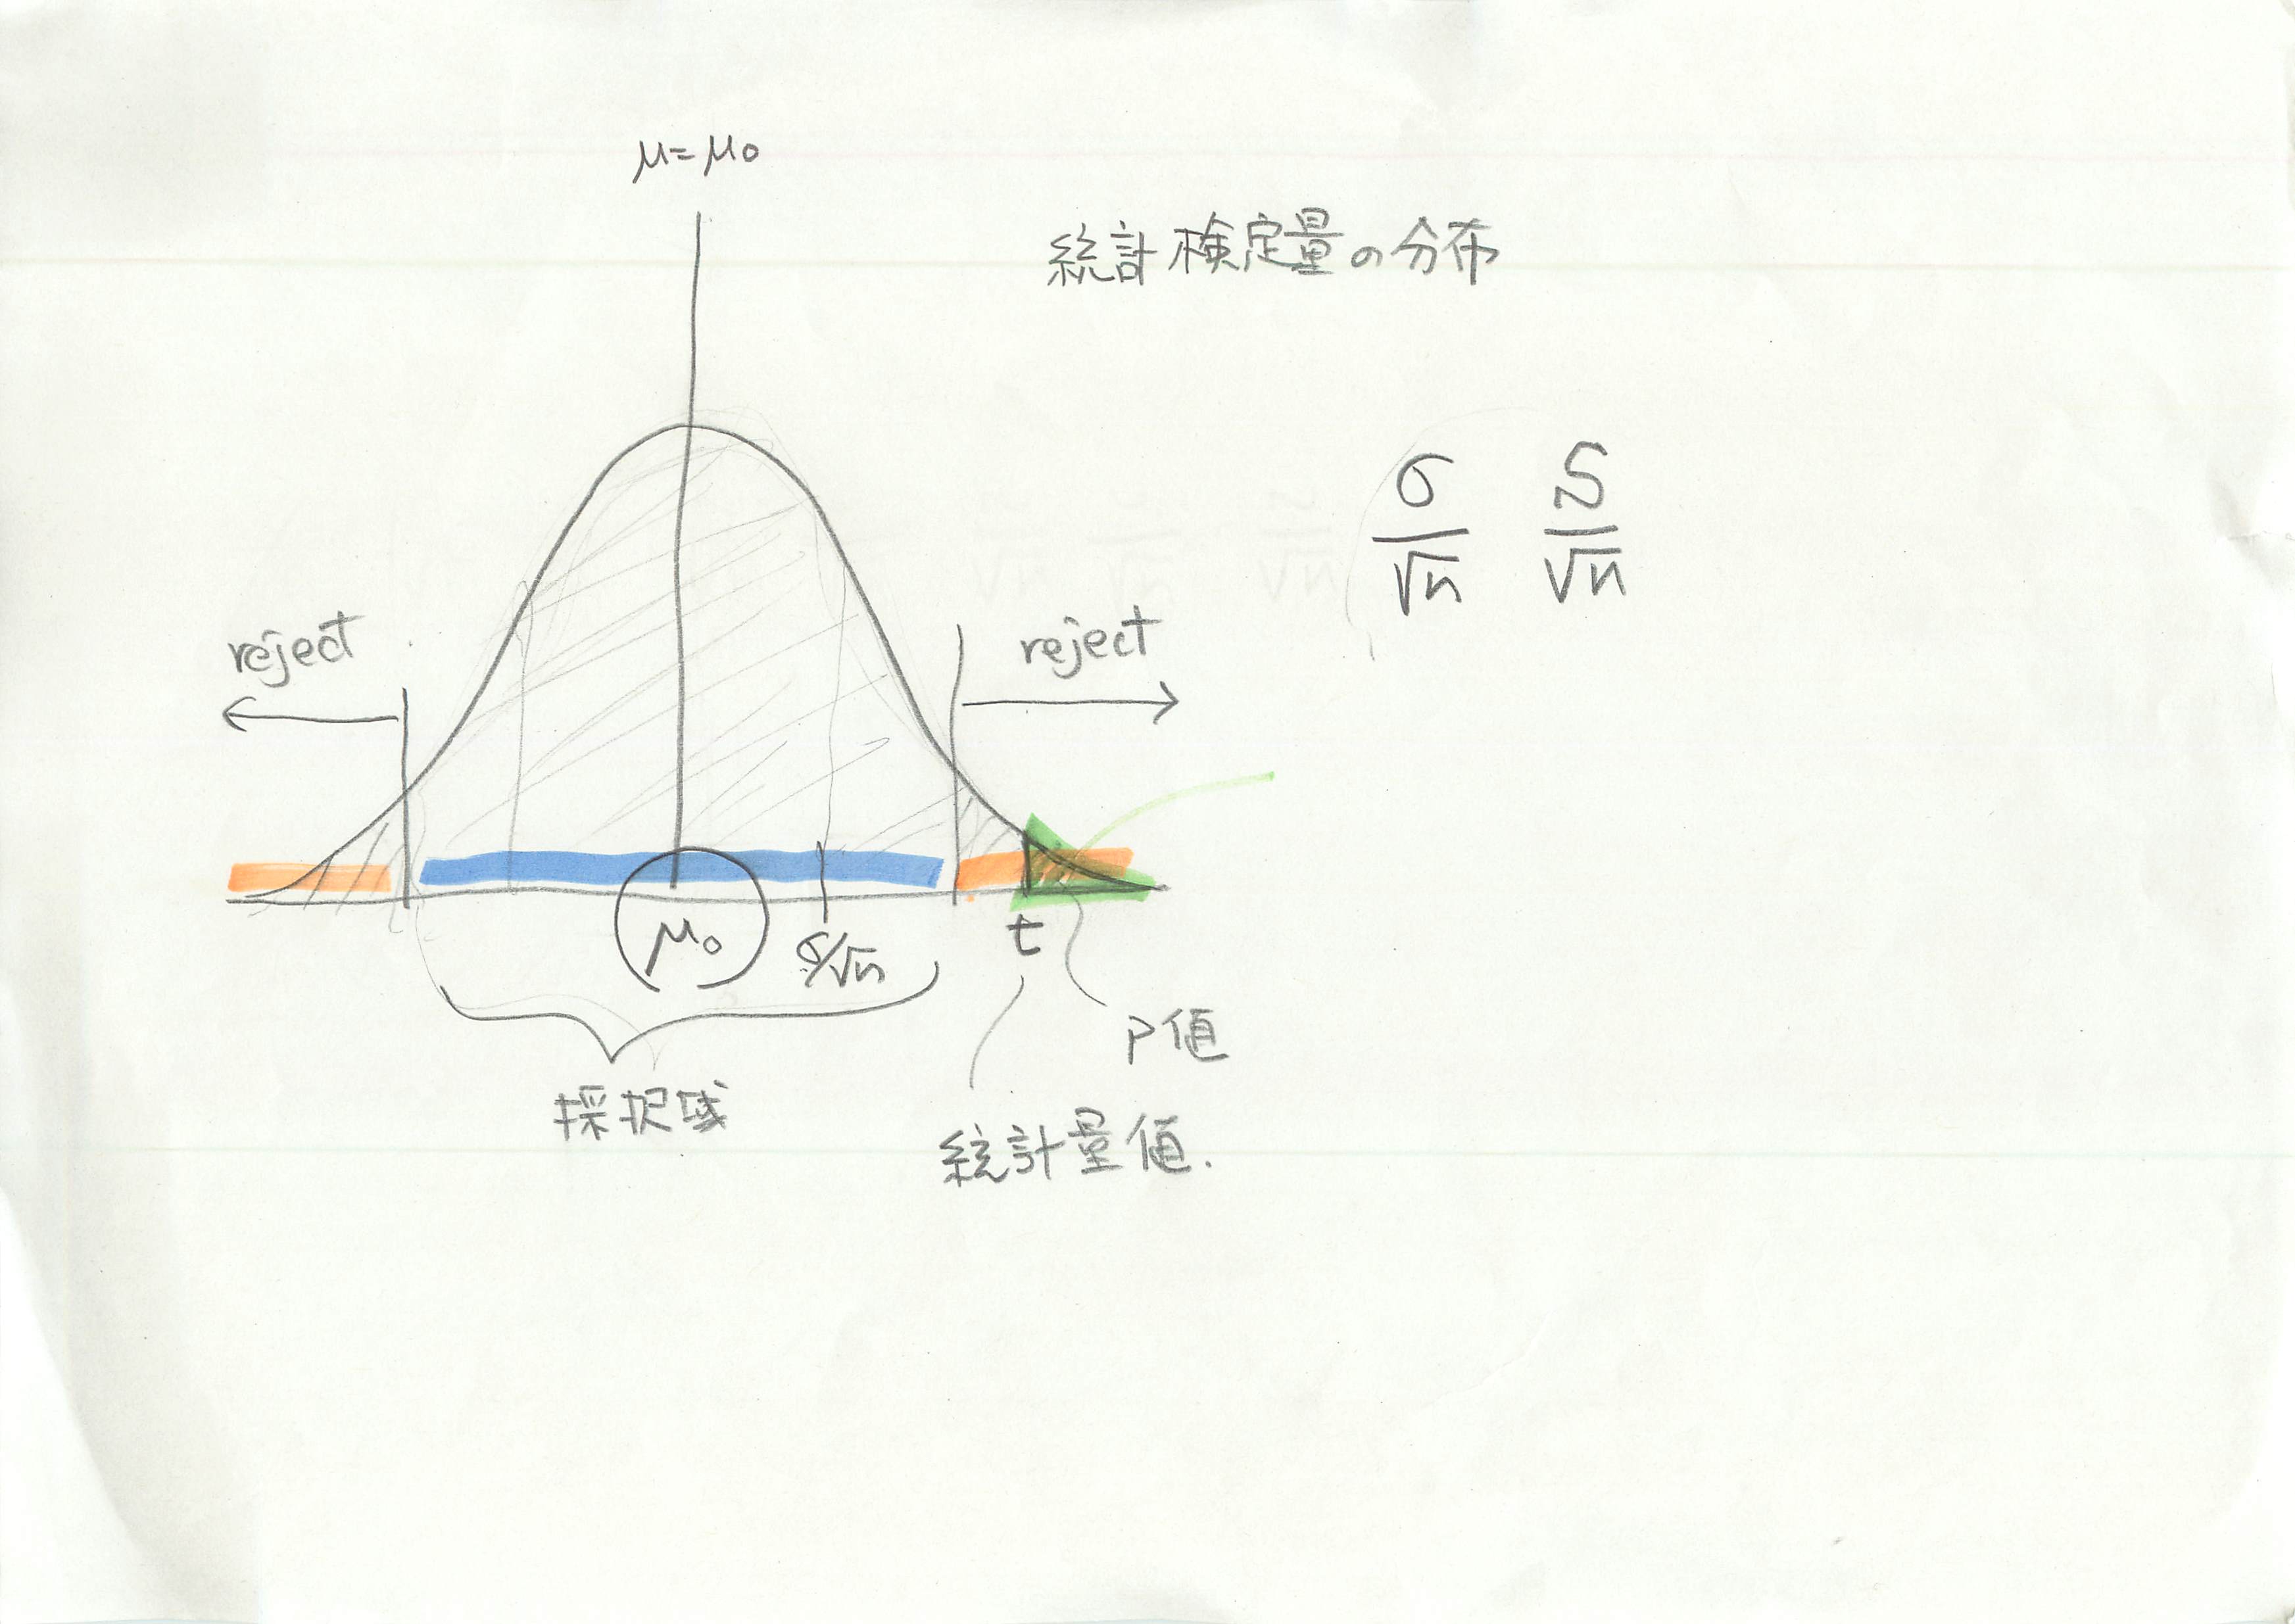 μ=μ0
統計検定量の分布
σ/√n S/√n
reject reject
μ0 σ/√n t
P値
採択域
統計量値.